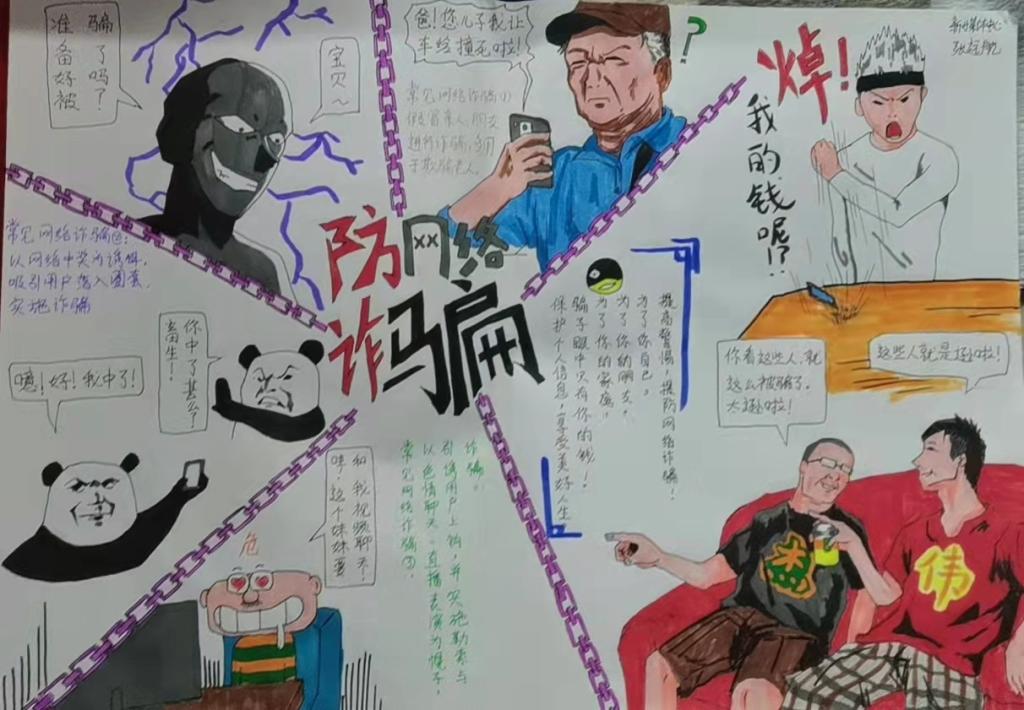 准备好被
骗了吗？
宝贝～
爸！您儿子我让
车给撞死啦！
常见网络诈骗①
假冒亲人、朋友
进行诈骗，多用
于欺骗老人。
?
焯！
我的钱呢!?
新媒体中心
防网络
诈骗
常见网络诈骗②：
以网络中奖为诱饵，
吸引用户落入圈套，
实施诈骗
噫！好！我中了！
你中了甚么？
畜生！
提高警惕，提防网络诈骗！
为了你自己，
为了你的朋友，
为了你的家庭！
骗子眼中只有你的钱！
保护个人信息，享受美好人生
你看这些人，就
这么被骗了。
太逊啦！
这些人就是逊啦！
和我视频聊天！
危
常见网络诈骗③：
以色情聊天、直播表演为幌子，
引诱用户上钩，并实施勒索与
诈骗。
杰
伟